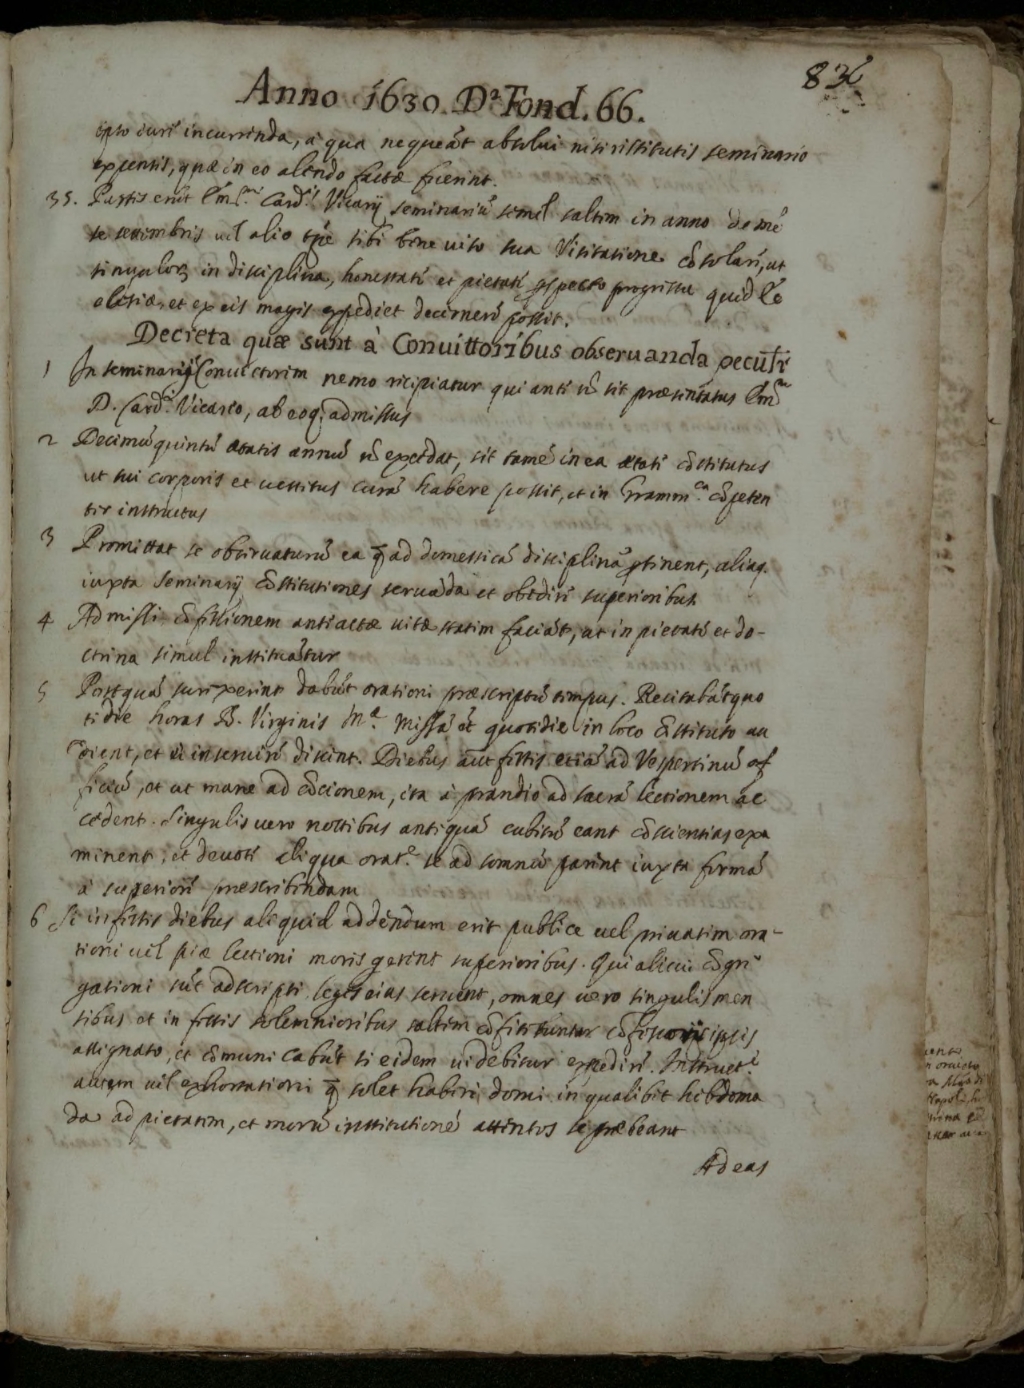 836
Anno 1630. Dª Fond. 66.
ipso iurè incurrenda, à qua nequeāt absolui nisi restitutis seminario
expensis, quæ in eo alendo factæ fuerint.
35. Partes erūt Em.mi Card.lis Vicarij seminariū semel saltem in anno de mē
se septembris uel alio tp̄e sibi bene uiso sua Visitatione cōsolari, ut
singulorū in disciplina, honestate et pietate perspecto progressu quid Ec
clesiæ, et ex eis magis expediet decernere possit.
Decreta quæ sunt à Conuittoribus obseruanda peculi
1 In seminarij Conuictum nemo recipiatur qui ante nō sit præsentatus Em.mo
D. Card. Vicario, ab eoq; admissus
2 Decimū quintū ætatis annū nō excedat, sit tamē in ea ætate cōstitutus
ut sui corporis et uestitus curā habere possit, et in Gramm.ca cōpeten
ter instructus
3 Promittat se obseruaturū ea q̄ ad domesticā disciplinā pertinent, aliaq.
iuxta Seminarij Cōstitutiones seruāda et obedire superioribus
4 Admissi Cōfessionem anteactæ uitæ statim faciāt, ut in pietate et do-
ctrina simul instituātur
5 Postquā surrexerint dabūt orationi præscriptū tempus. Recitabūt quo
tidie horas B. Virginis Missā et quotidie in loco Cōstituto au
dient, et ei inseruire discent. Diebus aūt festis etiā ad Vespertinū of
ficiū, et ut mane ad Cōcionem, ita à prandio ad sacrā lectionem ac
cedent. Singulis uero noctibus antequā cubitū eant cōscientias exa
minent, et deuote aliqua orat.e se ad somnū parent iuxta formā
à superiore præscribendam
6 Si in festis diebus aliquid addendum erit publice uel priuatim ora-
tioni uel piæ lectioni moris gerent superioribus. Qui alicui Cōgre
gationi sūt adscripti leges eius seruent, omnes uero singulis men
sibus et in festis solemnioribus saltem cōfitebuntur cōfessori ipsis
assignato, et cōmunicabūt si eidem uidebitur expedire. Instruct.i
autem uel exhortationi q̄ solet haberi domi in qualibet hebdoma
da ad pietatem, et morū institutionē attentos se præbeant
Ad eas